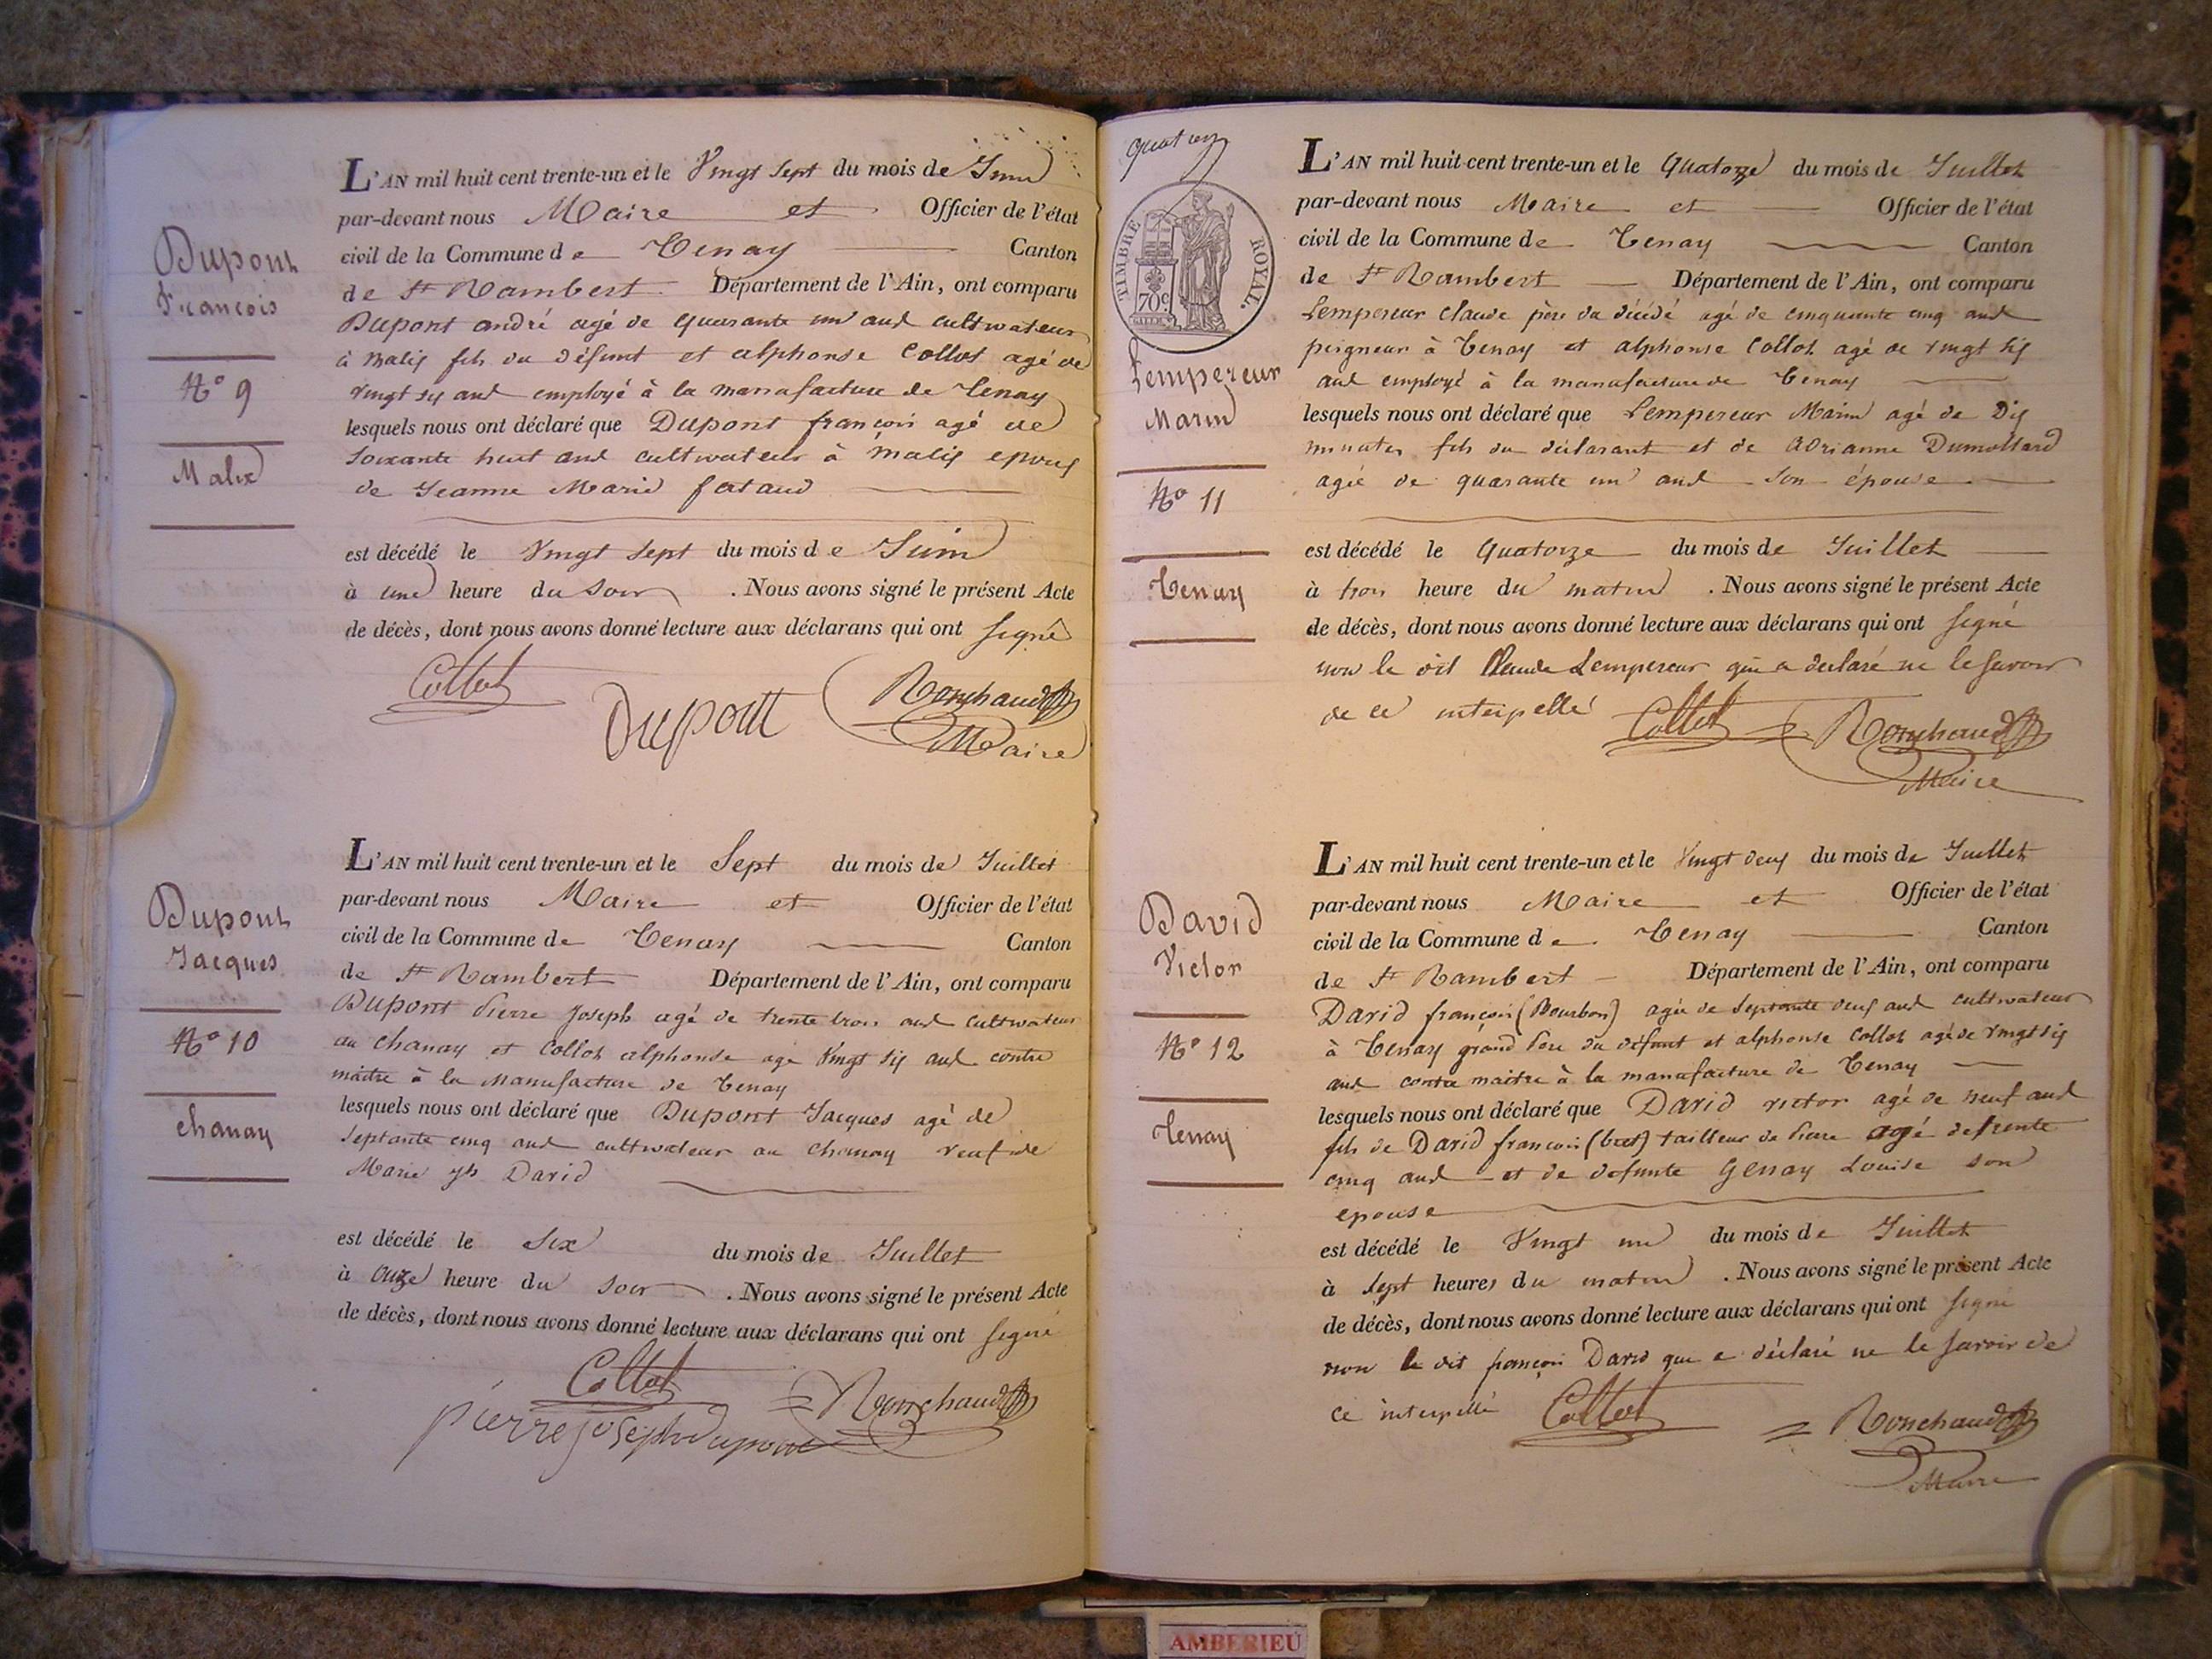 Dupont
François
N° 9
Malix
L'AN mil huit cent trente-un et le Vingt Sept du mois de Juin
par-devant nous Maire et Officier de l'état
civil de la Commune de Tenay Canton
de St Rambert Département de l'Ain, ont comparu
Dupont andré agé de quarante un ans cultivateur
à Malix fils du défunt et alphonse Collot agé de
vingt six ans employé à la manufacture de Tenay
lesquels nous ont déclaré que Dupont françois agé de
soixante huit ans cultivateur à Malix epoux
de Jeanne Marie
est décédé le Vingt Sept du mois de Juin
à une heure du soir . Nous avons signé le présent Acte
de décès, dont nous avons donné lecture aux déclarans qui ont signé
Collot
Dupont
Ronchaud
Maire
Dupont
Jacques
N° 10
Chanay
L'AN mil huit cent trente-un et le Sept du mois de Juillet
par-devant nous Maire et Officier de l'état
civil de la Commune de Tenay Canton
de St Rambert Département de l'Ain, ont comparu
Dupont Pierre Joseph agé de trente trois ans cultivateur
au Chanay et Collot alphonse agé Vingt six ans contre
maitre à la Manufacture de Tenay
lesquels nous ont déclaré que Dupont Jacques agé de
septante cinq ans cultivateur au Chanay veuf de
Marie jh David
est décédé le Six du mois de Juillet
à onze heure du soir . Nous avons signé le présent Acte
de décès, dont nous avons donné lecture aux déclarans qui ont signé
Collot
Ronchaud
pierre joseph dupont
quatre
TIMBRE ROYAL.
70c
Lempereur
Marin
N° 11
Tenay
L'AN mil huit cent trente-un et le Quatorze du mois de Juillet
par-devant nous Maire et Officier de l'état
civil de la Commune de Tenay Canton
de St Rambert Département de l'Ain, ont comparu
Lempereur Claude père du décédé agé de cinquante cinq ans
peigneur à Tenay et alphonse Collot agé de vingt six
ans employé à la manufacture de Tenay
lesquels nous ont déclaré que Lempereur Marin agé de Dix
minutes fils du déclarant et de Adrianne Dumollard
agée de quarante un ans son épouse
est décédé le Quatorze du mois de Juillet
à trois heure du matin . Nous avons signé le présent Acte
de décès, dont nous avons donné lecture aux déclarans qui ont signé
non le dit Claude Lempereur qui a declaré ne le savoir
de ce interpellé
Collot
Ronchaud
Maire
David
Victor
N° 12
Tenay
L'AN mil huit cent trente-un et le Vingt deux du mois de Juillet
par-devant nous Maire et Officier de l'état
civil de la Commune de Tenay Canton
de St Rambert Département de l'Ain, ont comparu
David françois (Bourbon) agée de septante deux ans cultivateur
à Tenay grand Pere du défunt et alphonse Collot agé de vingt six
ans contre maitre à la manufacture de Tenay
lesquels nous ont déclaré que David victor agé de neuf ans
fils de David françois tailleur de Pierre agé de trente
cinq ans et de defunte Genay Louise son
epouse
est décédé le Vingt un du mois de Juillet
à Sept heures du matin . Nous avons signé le présent Acte
de décès, dont nous avons donné lecture aux déclarans qui ont signé
non le dit françois David qui a déclaré ne le savoir de
ce interpellé
Collot
Ronchaud
Maire
AMBERIEU